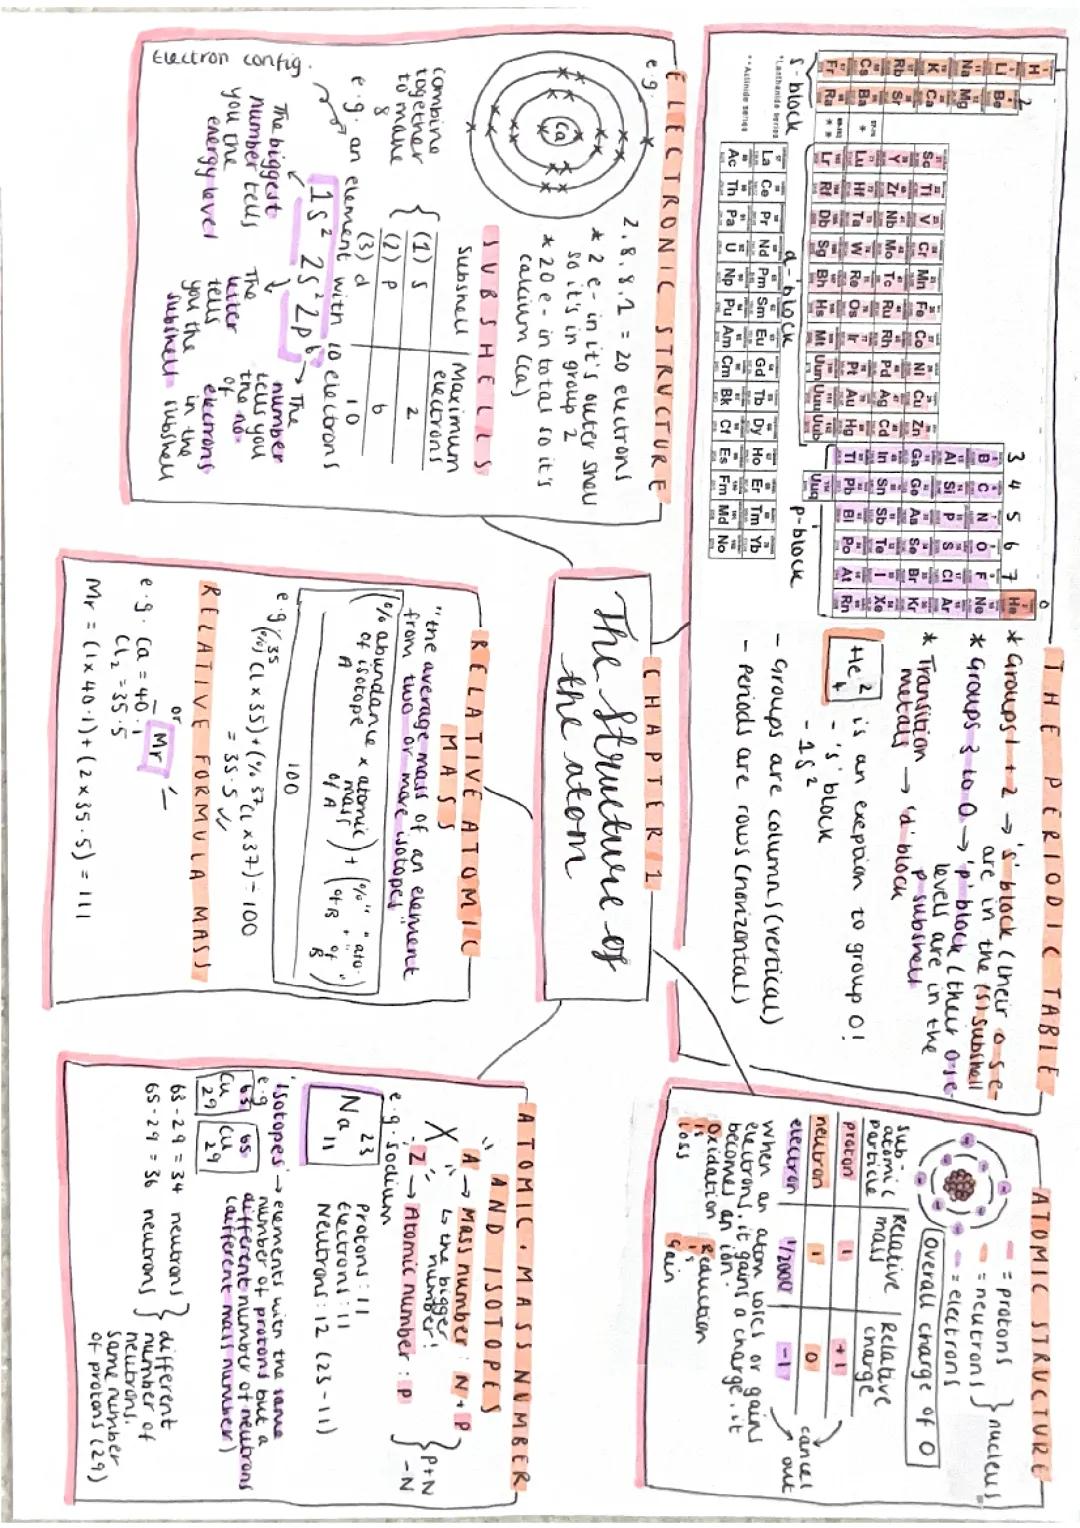 THE PERIODIC TABLE
1 2 3 4 5 6 7 0
H He
Li Be B C N O F Ne
Na Mg Al Si P S Cl Ar
K Ca Sc Ti V Cr Mn Fe Co Ni Cu Zn Ga Ge As Se Br Kr
Rb Sr Y Zr Nb Mo Tc Ru Rh Pd Ag Cd In Sn Sb Te I Xe
Cs Ba * Lu Hf Ta W Re Os Ir Pt Au Hg Tl Pb Bi Po At Rn
Fr Ra ** Lr Rf Db Sg Bh Hs Mt Uun Uuu Uub Uuq
s-block
d-block
p-block
*Lanthanide series
La Ce Pr Nd Pm Sm Eu Gd Tb Dy Ho Er Tm Yb
**Actinide series
Ac Th Pa U Np Pu Am Cm Bk Cf Es Fm Md No
* Groups 1 + 2 → 's' block (their o.s e-
are in the (s) subshell
* Groups 3 to 0 → 'p' block (their
levels are in the
p-subshell
* Transition → 'd' block
metals
He 2 4 is an exeption to group 0!
- 's' block
- 1s²
- Groups are columns (vertical)
- Periods are rows (horizontal)
ATOMIC STRUCTURE
= protons
= neutrons } nucleus
= electrons
Overall charge of 0
sub-atomic particle | Relative mass | Relative charge
proton | 1 | +1
neutron | 1 | 0
electron | 1/2000 | -1
cancel out
When an atom loses or gains
electrons, it gains a charge, it
becomes an ion.
Oxidation Is Loss
Reduction Is Gain
CHAPTER 1
The Structure of
the atom
ELECTRONIC STRUCTURE
e.g.
Ca
2.8.8.2 = 20 electrons
* 2 e- in it's outer shell
so it's in group 2
* 20 e- in total so it's
calcium (Ca)
SUBSHELLS
subshell | Maximum electrons
(1) s | 2
(2) p | 6
(3) d | 10
combine
together
to make
8
e.g. an element with 10 electrons
1s² 2s² 2p⁶
Electron config.
The biggest
number tells
you the
energy level
The
letter
tells
you the
subshell
The
number
tells you
the no.
of
electrons
in the
subshell
RELATIVE ATOMIC
MASS
"the average mass of an element
from two or more isotopes"
(% abundance of isotope A x atomic mass of A) + (%" " of B + ato. " of B)
100
e.g. (% ³⁵Cl x 35) + (% ³⁷Cl x 37) ÷ 100
= 35.5
RELATIVE FORMULA MASS
or Mr
e.g. Ca = 40.1
Cl₂ = 35.5
Mr = (1 x 40.1) + (2 x 35.5) = 111
ATOMIC, MASS NUMBER
AND ISOTOPES
"A" → Mass number : N + P
↳ the bigger
number!
X
"Z" → Atomic number : P
} P+N
- N
e.g. sodium
23
Na
11
Protons : 11
Electrons : 11
Neutrons : 12 (23 - 11)
'isotopes' → elements with the same
number of protons but a
different number of neutrons
(different mass number)
e.g
63 Cu 29
65 Cu 29
63 - 29 = 34 neutrons
65 - 29 = 36 neutrons
} different
number of
neutrons.
same number
of protons (29)